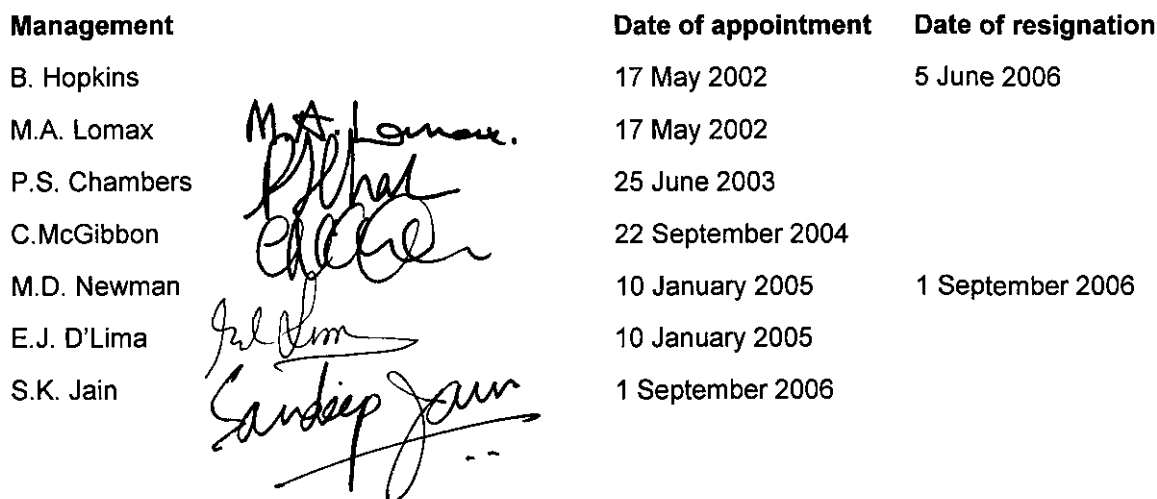 Management Date of appointment Date of resignation
B. Hopkins 17 May 2002 5 June 2006
M.A. Lomax M.A. Lomax. 17 May 2002
P.S. Chambers 25 June 2003
C.McGibbon 22 September 2004
M.D. Newman 10 January 2005 1 September 2006
E.J. D'Lima 10 January 2005
S.K. Jain Sandeep Jain 1 September 2006